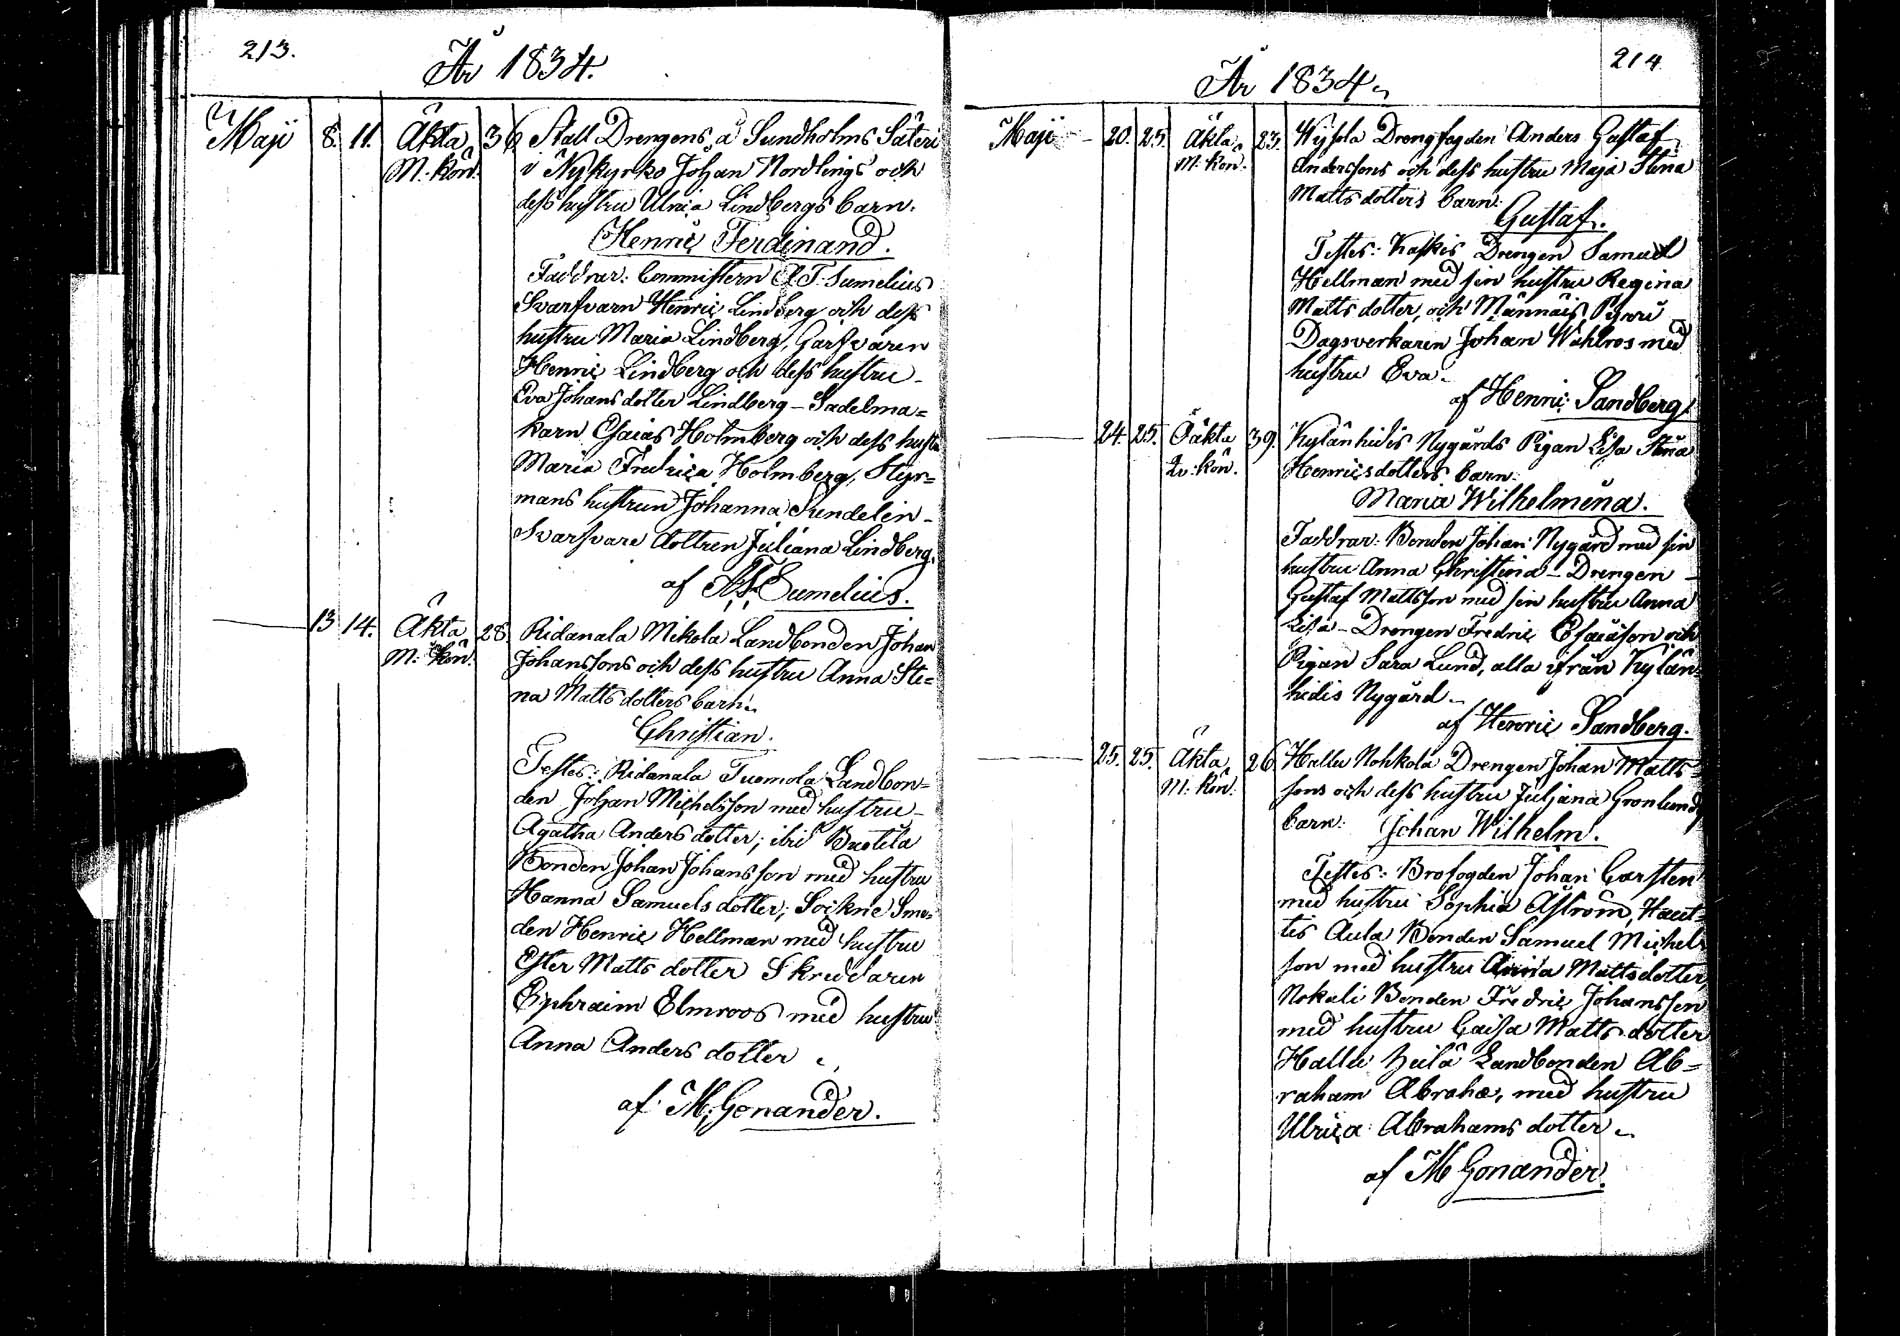 213.
År 1834.
Maji 8. 11. Äkta 36 Stall Drengens å Sundholms Säteri
M. Kön. i Nykyrko Johan Nordlings och
dess hustru Ulrica Lindbergs barn.
Henric Ferdinand.
Faddrar: Commistern A F Sumelius
Svarfvarn Henric Lindberg och dess
hustru Maria Lindberg, Garfvaren
Henric Lindberg och dess hustru
Eva Johans dotter Lindberg – Sadelma=
karn Esaias Holmberg och dess hustru
Maria Fredrica Holmberg, Styr=
mans hustrun Johanna Sundelin –
Svarfvare dottren Juliana Lindberg.
af A F Sumelius.
— 13 14. Äkta 28. Ridanala Mikola Landbonden Johan
M: Kön. Johanssons och dess hustru Anna Ste=
na Matts dotters barn.
Christian.
Testes: Ridanala Tuomola Landbon=
den Johan Michelsson med hustru –
Agatha Anders dotter; ibid Buotila
Bonden Johan Johansson med hustru
Hanna Samuels dotter; Sockne Sme=
den Henric Hellman med hustru
Ester Matts dotter Skreddaren
Ephraim Elmroos med hustru
Anna Anders dotter
af M. Gonander.
214
År 1834.
Maji – 20. 25. Äkta 23. Drengfogden Anders Gustaf
M. Kön. Anderssons och dess hustru Maja Stina
Matts dotters barn.
Gustaf.
Testes: Kaskis Drengen Samuel
Hellman med sin hustru Regina
Matts dotter, och Männäis
Dagsverkaren Johan Wahlros med
hustru Eva.
af Henric Sandberg.
— 24. 25. Oäkta 39. Kylänhidis Nygårds Pigan Lisa Stina
Qv: Kön. Henricsdotters barn.
Maria Wilhelmina.
Faddrar: Bonden Johan Nygård med sin
hustru Anna Christina – Drengen –
Gustaf Mattsson med sin hustru Anna
Lisa – Drengen Fredric Esaiasson och
Pigan Sara Lund, alla ifrån Kylän=
hidis Nygård.
af Henric Sandberg.
— 25. 25. Äkta 26 Hallu Nohkola Drengen Johan Matts
M: Kön. sons och dess hustru Juliana Gronlunds
barn: Johan Wilhelm.
Testes: Brofogden Johan Carsten
med hustru Sophia Åström, Haut=
tis Aula Bonden Samuel Michels
son med hustru Anna Mattsdotter,
Nokali Bonden Fredric Johansson
med hustru Caisa Matts dotter
Hallu Landbonden Ab=
raham Abrahæ, med hustru
Ulrica Abrahams dotter
af M Gonander.